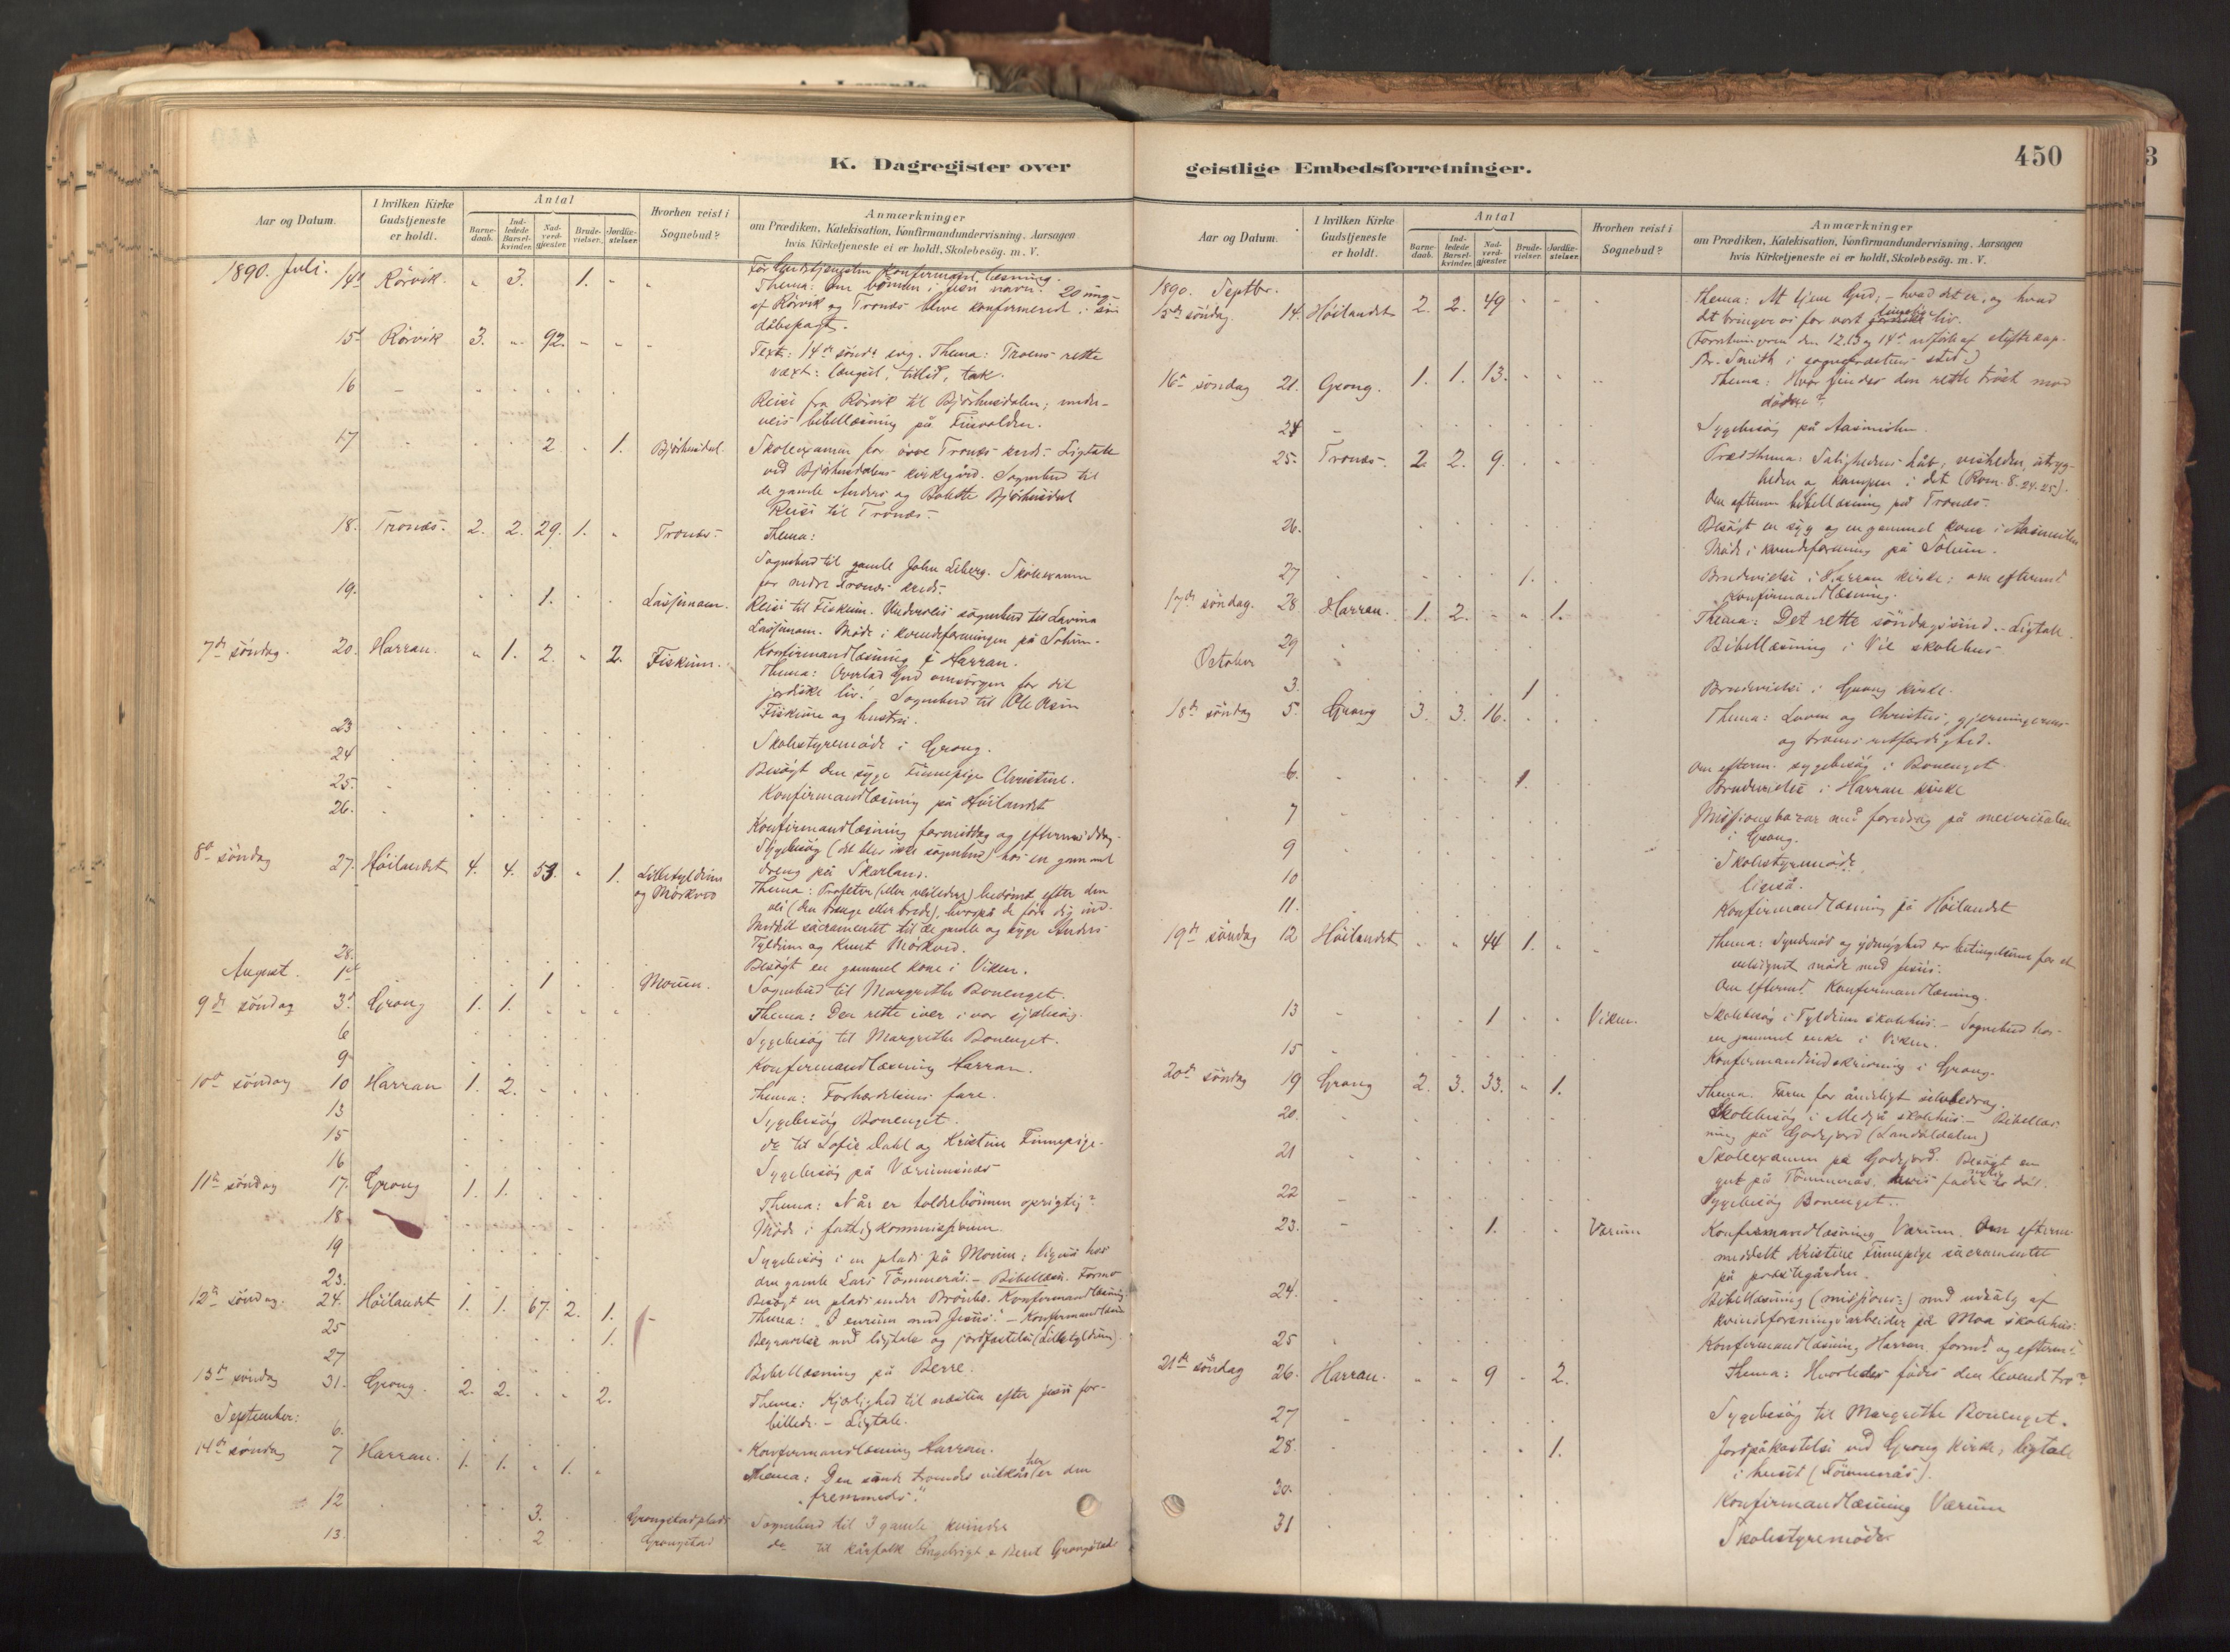 K. Dagregister over
Aar og Datum.
I hvilken Kirke Gudstjeneste er holdt.
Antal
Barne-daab.
Ind-ledede Barsel-kvinder.
Nad-verd-gjæster
Brude-vielser.
Jordfæ-stelser.
Hvorhen reist i Sognebud?
Anmærkninger
om Prædiken, Katekisation, Konfirmandundervisning, Aarsagen
hvis Kirketjeneste ei er holdt, Skolebesög. m. V.
1890. Juli. 14d Rörvik. " 3. 1. " " För Gudstjenesten konfirmand læsning.
Thema: Om bönnen i Jesu navn. 20 ung-
af Rörvik og Tronæs bleve konfirmered i sin
dåbspagt.
15d Rörvik 3. " 92. " " " Text: 14de sönd. Thema: Troens rette
vext: længsel, tillid, tak.
16 Reise fra Rörvik til Bjørhusdalen; under-
veis bibellæsning på Finvolden.
17 2. 1. Bjørhusdal. Skolexamen for övre Tronæs kreds - Ligtale
ved Bjørhusdalens kirkegård. Sognebud til
de gamle Anders og Bolette Bjørhusdal
Reise til Tronæs.
18. Tronæs. 2. 2. 29. 1. " Tronæs. Thema:
Sognebud til gamle John Liberg. Skolexamen
for nedre Tronæs kreds.
19. 1. Lassemoen. Reise til Fiskum. Underveis sognebud til Lavina
Lassemoen. Møde i kvindeforeningen på Solum.
7de söndag. 20. Harran. " 1. 2. " 2. Fiskum. Konfirmandlæsning i Harran.
Thema: Overlad Gud omsorgen for dit
jordiske liv! Sognebud til Ole Asin
Fiskum og hustru.
23 Skolestyremöde i Grong.
24 Besögt den syge Finnepige Christine.
25. Konfirmandlæsning på Höilandet
26. Konfirmandlæsning formiddag og eftermiddag.
Sygebesög (det blev ikke sognebud) hos en gammel
dreng på Skarland.
8de söndag 27. Höilandet 4. 4. 53. " 1. Lilletyldum og Mörkved
Thema: Profeter (eller veiledere) bedömt efter den
vei (den trange eller brede), hvorpå de före dig ind.
Meddelt sacramentet til de gamle og syge Anders
Tyldum og Knut Mörkved.
28. Besögt en gammel kone i Viken.
August. 1ste 1 Moum. Sognebud til Margrethe Bonenget.
9de söndag 3d Grong 1. 1. Thema: Den rette iver i vor sjælesörg.
6 Sygebesög til Margrethe Bonenget.
9 Konfirmandlæsning Harran.
10de söndag 10 Harran 1. 2. Thema: Forhærdelsens fare.
13 Sygebesög Bonenget.
15 do til Sofie Dahl og Kristine Finnepige.
16 Sygebesög på Værumsnæs
11te söndag 17. Grong 1. 1. Thema: Når er tolderbönnen oprigtig?
18 Möde i fattigkommissionen.
19 Sygebesög i en plads på Moum; ligeså hos
den gamle Lars Tömmerås. - Bibellæsn. Formo
23. Besögt en plads under Brömbo. Konfirmandlæsning
12te söndag. 24. Höilandet 1. 1. 67. 2. 1. Thema: "I enrum med Jesus." - Konfirmandlæsn
25 1. Begravelse med ligtale og jordfæstelse (Lilletyldum).
27 Bibellæsning på Berre.
13de söndag 31. Grong. 2. 2. " " 2. Thema: Kjærlighed til næsten efter Jesu for-
billede. - Ligtale.
September: 6. Konfirmandlæsning Harran.
14de söndag 7 Harran. 1. 1. " 1. " Thema: Den sande troendes vilkår her er den
"fremmedes."
12 3. Grongstadplads Sognebud til 3 gamle kvinder
13. 2 Grongstad do til kårfolk Engebrigt o Beret Grongstad
geistlige Embedsforretninger.
450
Aar og Datum.
I hvilken Kirke Gudstjeneste er holdt.
Antal
Barne-daab.
Ind-ledede Barsel-kvinder.
Nad-verd-gjæster
Brude-vielser.
Jordfæ-stelser.
Hvorhen reist i Sognebud?
Anmærkninger
om Prædiken, Katekisation, Konfirmandundervisning, Aarsagen
hvis Kirketjeneste ei er holdt, Skolebesög. m. V.
1890. Septbr.
15de söndag. 14. Höilandet 2. 2. 49 Thema: At tjene Gud; - hvad det er, og hvad
det bringer os for vort liv.
(Forretningerne den 12. 13 og 14de udfört af stiftskap.
Br. Smith i sogneprestens sted)
16de söndag 21. Grong. 1. 1. 13. Thema: Hvor findes den rette tröst mod
döden?
24 Sygebesög på Aasmulen
25. Tronæs. 2. 2. 9. Præd.thema: Salighedens håb; visheden, utryg-
heden og kampen i det (Rom. 8. 24. 25).
Om efterm bibellæsning på Tronæs.
26. Besögt en syg og en gammel kone i Aasmulen
Möde i kvindeforening på Solum.
27 1. Brudevielse i Harran kirke; om efterm
konfirmandlæsning.
17de söndag. 28 Harran. 1. 2. " " 1. Thema: Det rette söndagssind. - Ligtale.
29 Bibellæsning i Vie skolehus
October
3. 1 Brudevielse i Grong kirke.
18de söndag 5. Grong 3. 3. 16. Thema: Loven og Christus, gjerningernes
og troens retfærdighed.
Om efterm. sygebesög i Bonenget.
6. 1. Brudevielse i Harran kirke
7 Missionsbazar med foredrag på meieri salen
i Grong.
9 Skolestyremöde
10 ligeså.
11. Konfirmandlæsning på Höilandet
19de söndag 12 Höilandet " " 44 1. Thema: Syndenöd og ydmyghed er betingelserne for et
velsignet möde med Jesus.
Om eftermd. Konfirmandlæsning.
13 1 Viken. Skolebesög i Tyldum skolehus. - Sognebud hos
en gammel enke i Viken.
15 Konfirmandindskrivning i Grong.
20de söndag 19 Grong 2. 3. 33. " 1. Thema. Faren for åndeligt selvbedrag.
20. Skolebesög i Medjå skolehus. - Bibellæs
ning på Godejord (Sanddölalen)
21 Skolexamen på Godejord. Besögt en
gut på Tömmerås, hvis fader nylig er död.
22 Sygebesög Bonenget.
23. 1. Værum Konfirmandlæsning Værum. Om efterm
meddelt Kristine Finnepige sacramentet
på prestegården.
24. Bibellæsning (missions-) med udsalg af
kvindeforeningsarbeider på Moa skolehus.
25 Konfirmandlæsning Harran form. og efterm.
21de söndag 26. Harran. " " 9 " 2. Thema: Hvorledes födes den levende tro?
27 Sygebesög til Margrethe Bonenget.
28. 1. Jordpåkastelse ved Grong kirke; ligtale
i huset (Tömmerås).
30. Konfirmandlæsning Værum
31 Skolestyremöde